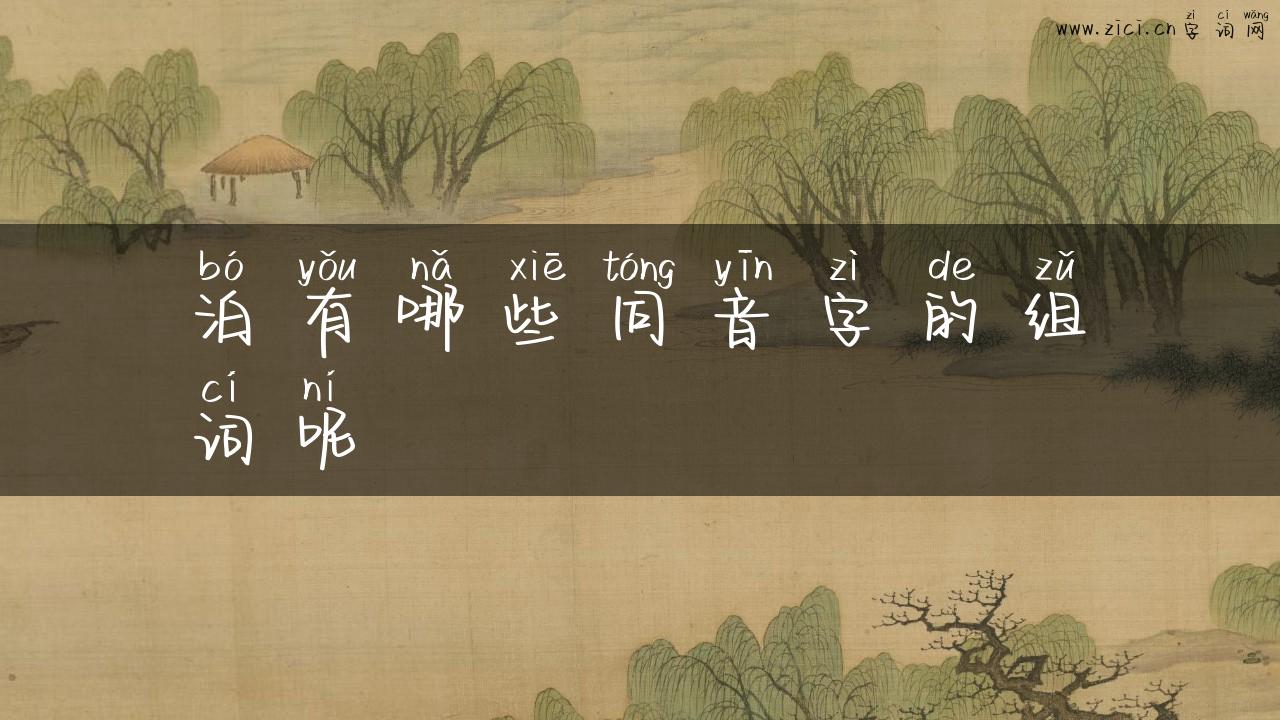 zì cí wǎng
www.zici.cn字词网
bó yǒu nǎ xiē tóng yīn zì de zǔ
泊有哪些同音字的组
cí ní
词呢